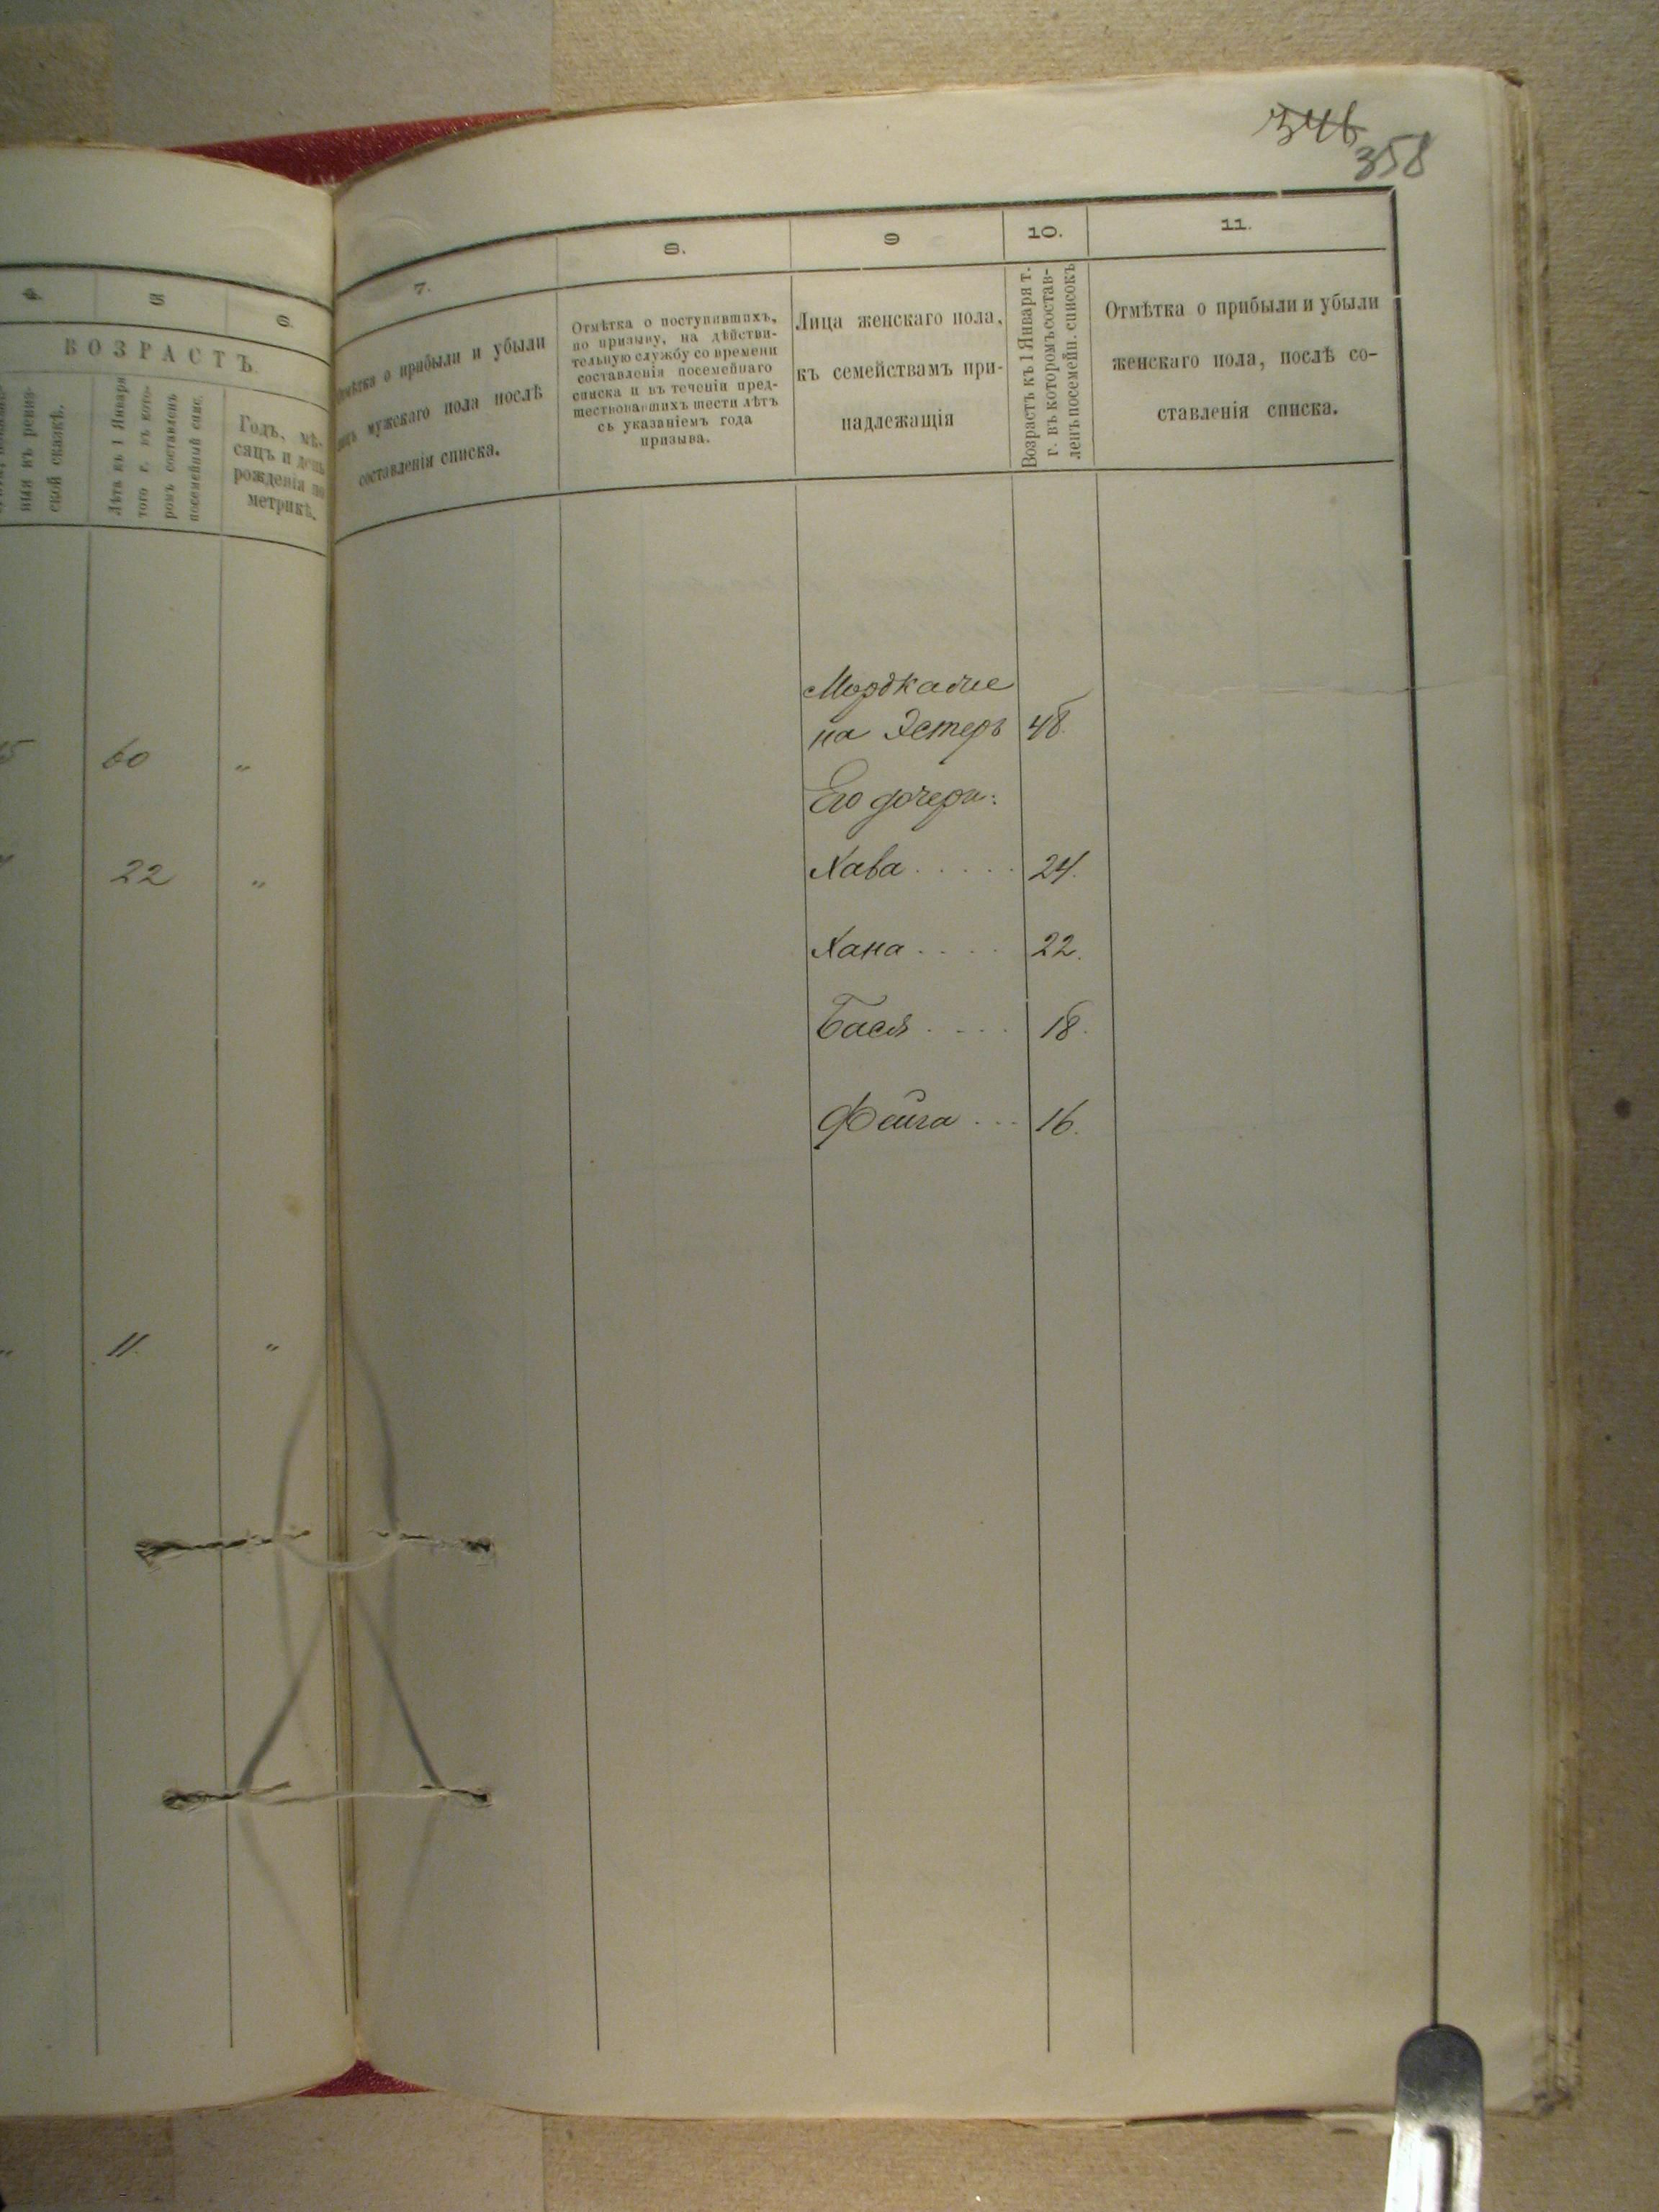 346
358
4.
5
6.
ВОЗРАСТЪ.
ния къ ревиз-
ской сказкѣ.
Лѣта къ 1 Января
того г. въ кото-
ромъ составленъ
посемейный спис.
Годъ, мѣ-
сяцъ и день
рожденія по
метрикѣ.
60 "
22 "
11. "
7.
8.
9
10.
11.
о прибыли и убыли
мужскаго пола послѣ
составленія списка.
Отмѣтка о поступившихъ,
по призыву, на дѣйстви-
тельную службу со времени
составленія посемейнаго
списка и въ теченіи пред-
шествовавшихъ шести лѣтъ
съ указаніемъ года
призыва.
Лица женскаго пола,
къ семействамъ при-
надлежащія
Возрастъ къ 1 Января т.
г. въ которомъ состав-
ленъ посемейн. списокъ
Отмѣтка о прибыли и убыли
женскаго пола, послѣ со-
ставленія списка.
на Эстеръ 48.
Его дочери:
Хава 24.
Хана 22.
Бася 18.
Фейга 16.